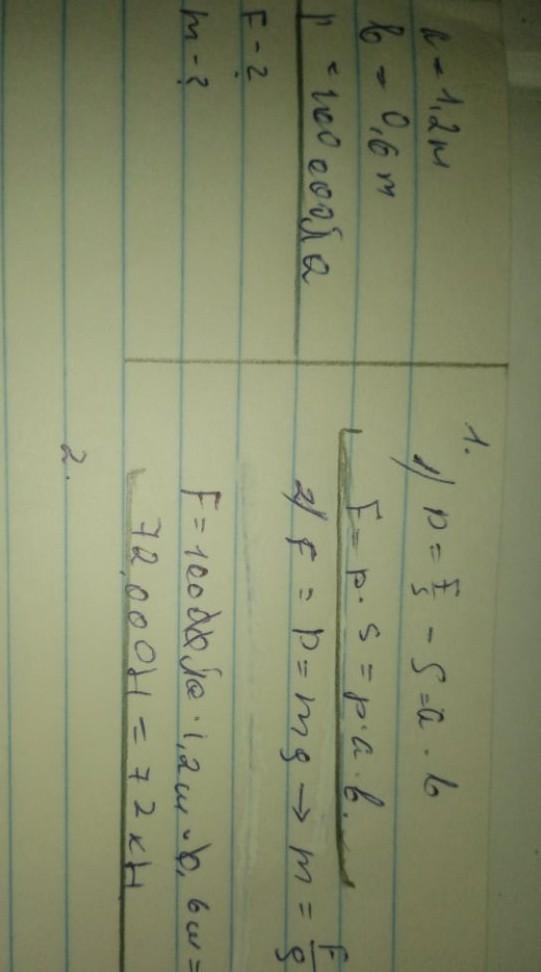 a = 1,2м
b = 0,6 м
p = 100 000 Па
F - ?
m - ?
1.
1) p = F/S - S = a · b
F = p · s = p · a · b.
2) F = P = mg → m = F/g
F = 100000 Па · 1,2м · 0,6м =
72 000Н = 72 кН
2.